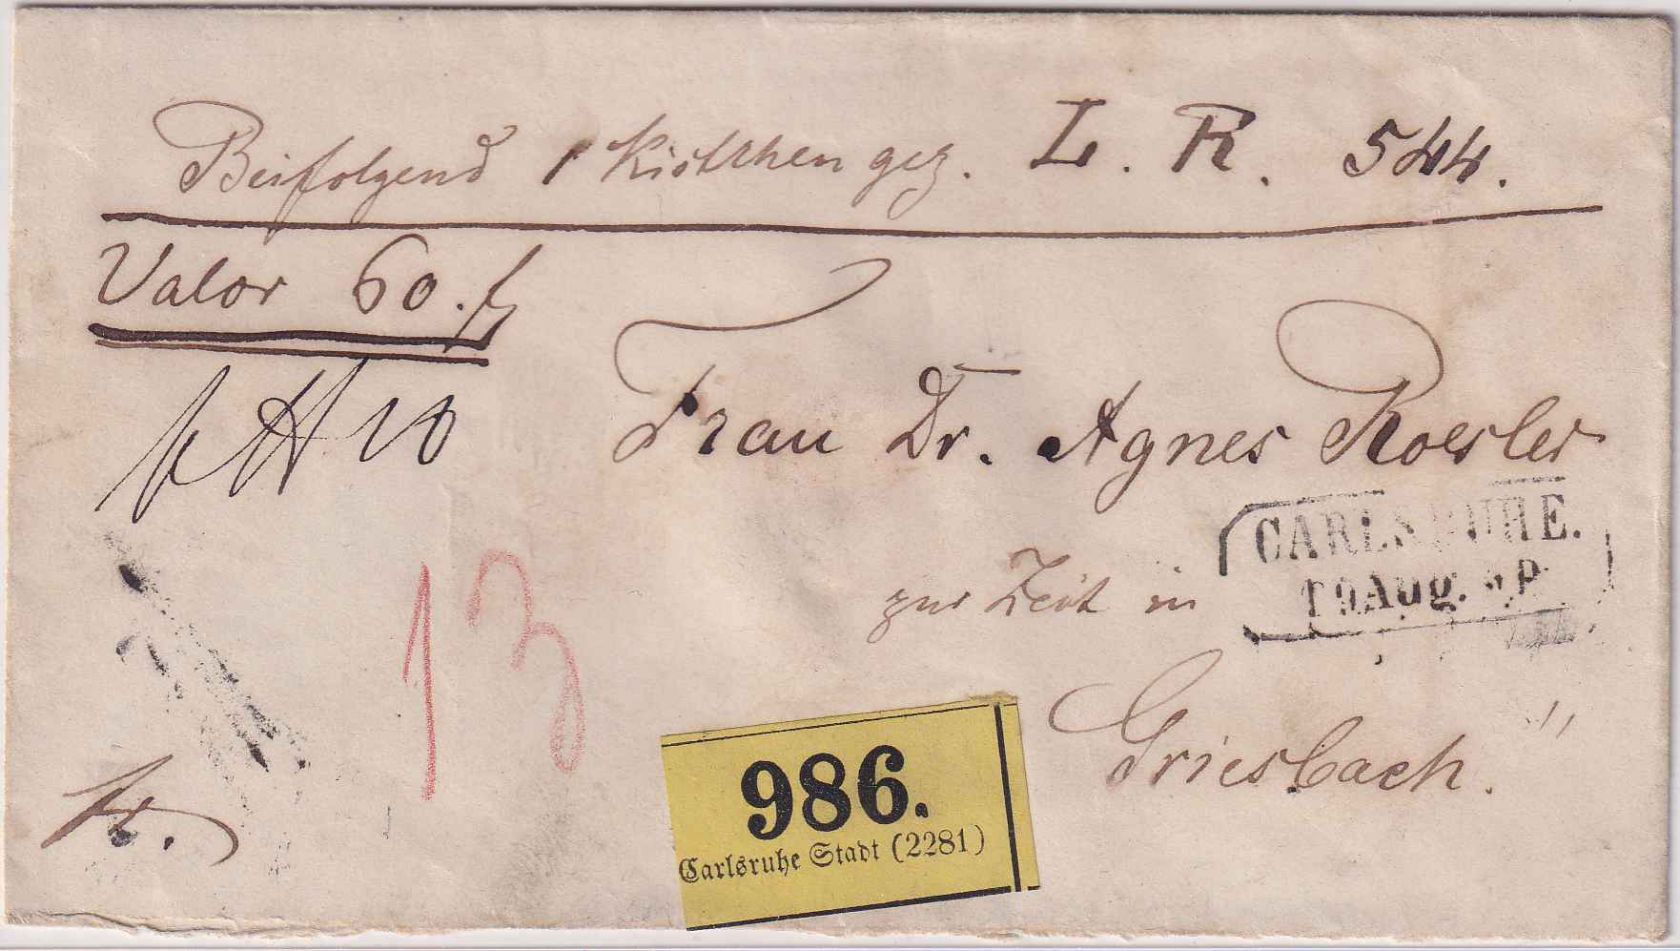 Beifolgend 1 Kistchen gez. L. R. 544.
Valor 60. f
Frau Dr. Agnes Roesler
CARLSRUHE.
19 Aug.
zur Zeit in
Griesbach.
13
986.
Carlsruhe Stadt (2281)
fr.